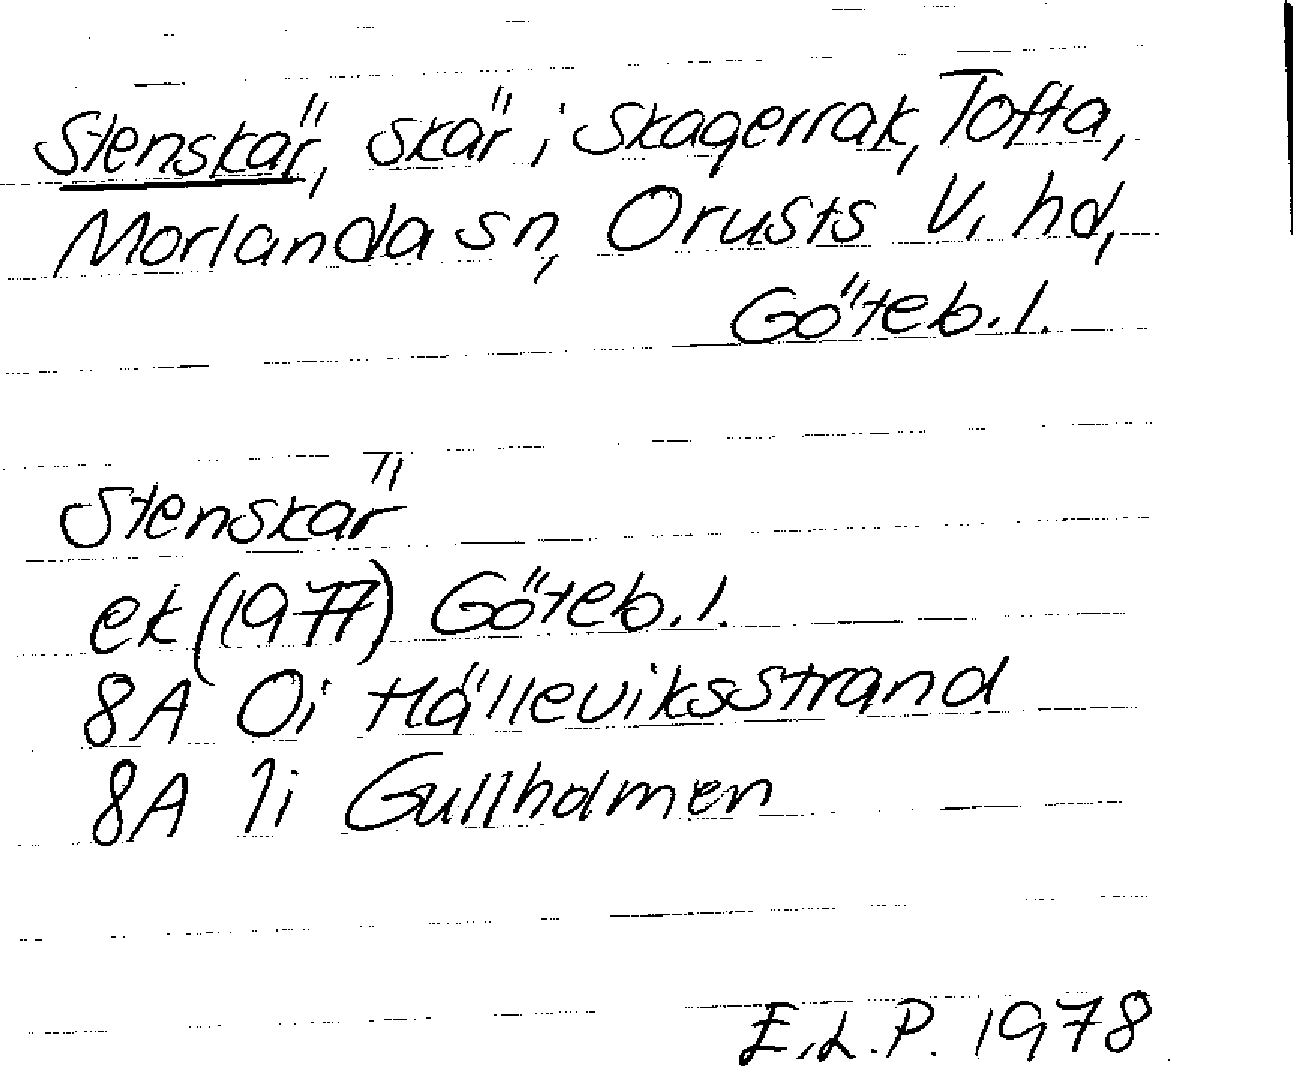 Stenskär, skär i Skagerrak, Tofta,
Morlanda sn, Orusts V. hd,
Göteb. l.
Stenskär
ek (1977) Göteb. l.
8A 0i Hälleviksstrand
8A 1i Gullholmen
E.L.P. 1978